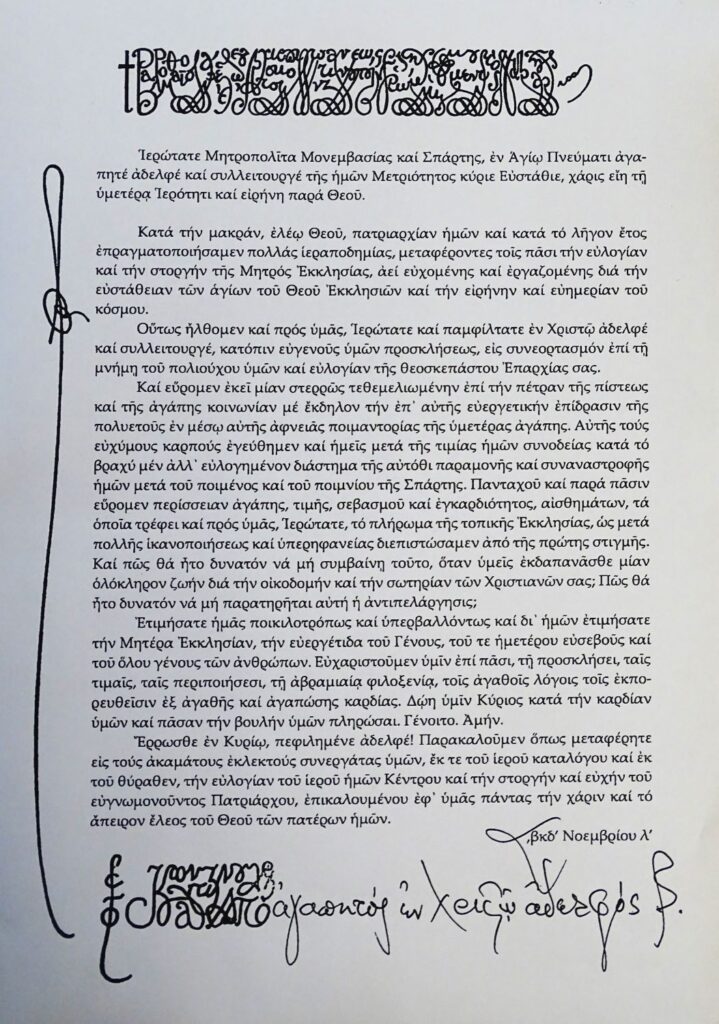 Ἱερώτατε Μητροπολῖτα Μονεμβασίας καί Σπάρτης, ἐν Ἁγίῳ Πνεύματι ἀγα-
πητέ ἀδελφέ καί συλλειτουργέ τῆς ἡμῶν Μετριότητος κύριε Εὐστάθιε, χάρις εἴη τῇ
ὑμετέρᾳ Ἱερότητι καί εἰρήνη παρά Θεοῦ.
Κατά τήν μακράν, ἐλέῳ Θεοῦ, πατριαρχίαν ἡμῶν καί κατά τό λῆγον ἔτος
ἐπραγματοποιήσαμεν πολλάς ἱεραποδημίας, μεταφέροντες τοῖς πᾶσι τήν εὐλογίαν
καί τήν στοργήν τῆς Μητρός Ἐκκλησίας, ἀεί εὐχομένης καί ἐργαζομένης διά τήν
εὐστάθειαν τῶν ἁγίων τοῦ Θεοῦ Ἐκκλησιῶν καί τήν εἰρήνην καί εὐημερίαν τοῦ
κόσμου.
Οὕτως ἤλθομεν καί πρός ὑμᾶς, Ἱερώτατε καί παμφίλτατε ἐν Χριστῷ ἀδελφέ
καί συλλειτουργέ, κατόπιν εὐγενοῦς ὑμῶν προσκλήσεως, εἰς συνεορτασμόν ἐπί τῇ
μνήμῃ τοῦ πολιούχου ὑμῶν καί εὐλογίαν τῆς θεοσκεπάστου Ἐπαρχίας σας.
Καί εὕρομεν ἐκεῖ μίαν στερρῶς τεθεμελιωμένην ἐπί τήν πέτραν τῆς πίστεως
καί τῆς ἀγάπης κοινωνίαν μέ ἔκδηλον τήν ἐπ᾿ αὐτῆς εὐεργετικήν ἐπίδρασιν τῆς
πολυετοῦς ἐν μέσῳ αὐτῆς ἀφνειᾶς ποιμαντορίας τῆς ὑμετέρας ἀγάπης. Αὐτῆς τούς
εὐχύμους καρπούς ἐγεύθημεν καί ἡμεῖς μετά τῆς τιμίας ἡμῶν συνοδείας κατά τό
βραχύ μέν ἀλλ᾿ εὐλογημένον διάστημα τῆς αὐτόθι παραμονῆς καί συναναστροφῆς
ἡμῶν μετά τοῦ ποιμένος καί τοῦ ποιμνίου τῆς Σπάρτης. Πανταχοῦ καί παρά πᾶσιν
εὕρομεν περίσσειαν ἀγάπης, τιμῆς, σεβασμοῦ καί ἐγκαρδιότητος, αἰσθημάτων, τά
ὁποῖα τρέφει καί πρός ὑμᾶς, Ἱερώτατε, τό πλήρωμα τῆς τοπικῆς Ἐκκλησίας, ὡς μετά
πολλῆς ἱκανοποιήσεως καί ὑπερηφανείας διεπιστώσαμεν ἀπό τῆς πρώτης στιγμῆς.
Καί πῶς θά ἦτο δυνατόν νά μή συμβαίνῃ τοῦτο, ὅταν ὑμεῖς ἐκδαπανᾶσθε μίαν
ὁλόκληρον ζωήν διά τήν οἰκοδομήν καί τήν σωτηρίαν τῶν Χριστιανῶν σας; Πῶς θά
ἦτο δυνατόν νά μή παρατηρῆται αὐτή ἡ ἀντιπελάργησις;
Ἐτιμήσατε ἡμᾶς ποικιλοτρόπως καί ὑπερβαλλόντως καί δι᾿ ἡμῶν ἐτιμήσατε
τήν Μητέρα Ἐκκλησίαν, τήν εὐεργέτιδα τοῦ Γένους, τοῦ τε ἡμετέρου εὐσεβοῦς καί
τοῦ ὅλου γένους τῶν ἀνθρώπων. Εὐχαριστοῦμεν ὑμῖν ἐπί πᾶσι, τῇ προσκλήσει, ταῖς
τιμαῖς, ταῖς περιποιήσεσι, τῇ ἀβραμιαίᾳ φιλοξενίᾳ, τοῖς ἀγαθοῖς λόγοις τοῖς ἐκπο-
ρευθεῖσιν ἐξ ἀγαθῆς καί ἀγαπώσης καρδίας. Δῴη ὑμῖν Κύριος κατά τήν καρδίαν
ὑμῶν καί πᾶσαν τήν βουλήν ὑμῶν πληρώσαι. Γένοιτο. Ἀμήν.
Ἔρρωσθε ἐν Κυρίῳ, πεφιλημένε ἀδελφέ! Παρακαλοῦμεν ὅπως μεταφέρητε
εἰς τούς ἀκαμάτους ἐκλεκτούς συνεργάτας ὑμῶν, ἔκ τε τοῦ ἱεροῦ καταλόγου καί ἐκ
τοῦ θύραθεν, τήν εὐλογίαν τοῦ ἱεροῦ ἡμῶν Κέντρου καί τήν στοργήν καί εὐχήν τοῦ
εὐγνωμονοῦντος Πατριάρχου, ἐπικαλουμένου ἐφ᾿ ὑμᾶς πάντας τήν χάριν καί τό
ἄπειρον ἔλεος τοῦ Θεοῦ τῶν πατέρων ἡμῶν.
͵βκδ’ Νοεμβρίου λ’
ἀγαπητός ἐν Χριστῷ ἀδελφός β.